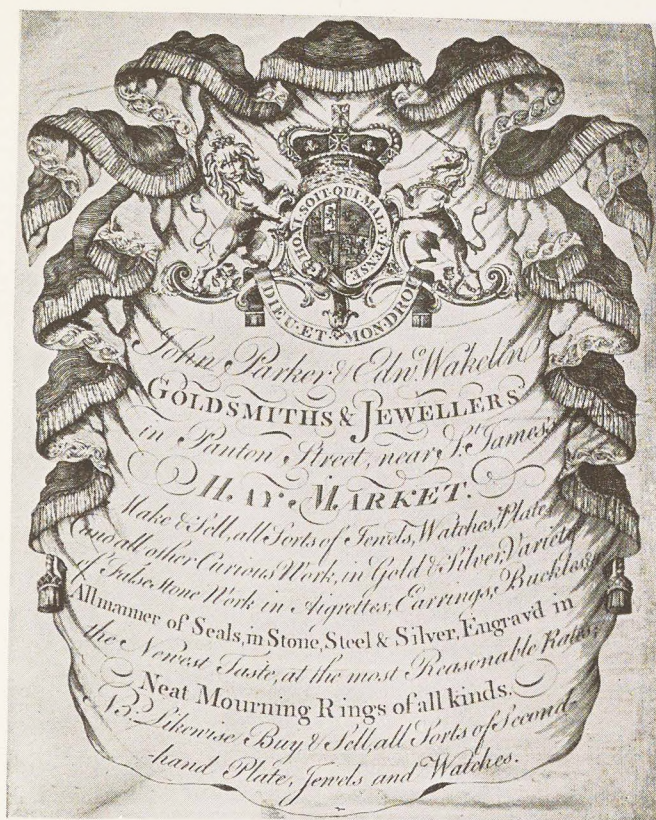 HONI·SOIT·QUI·MAL·Y·PENSE
DIEU·ET·MON·DROIT
John Parker & Edwd. Wakelin
GOLDSMITHS & JEWELLERS
in Panton Street, near St. James's
HAY MARKET.
Make & Sell, all Sorts of Jewels, Watches, Plate,
and all other Curious Work, in Gold & Silver, Variety
of False stone Work in Aigrettes, Earrings, Buckles, &c.
All manner of Seals, in Stone, Steel & Silver, Engrav'd in
the Newest Taste, at the most Reasonable Rates;
Neat Mourning Rings of all kinds.
NB. Likewise Buy & Sell, all Sorts of Second-
hand Plate, Jewels and Watches.